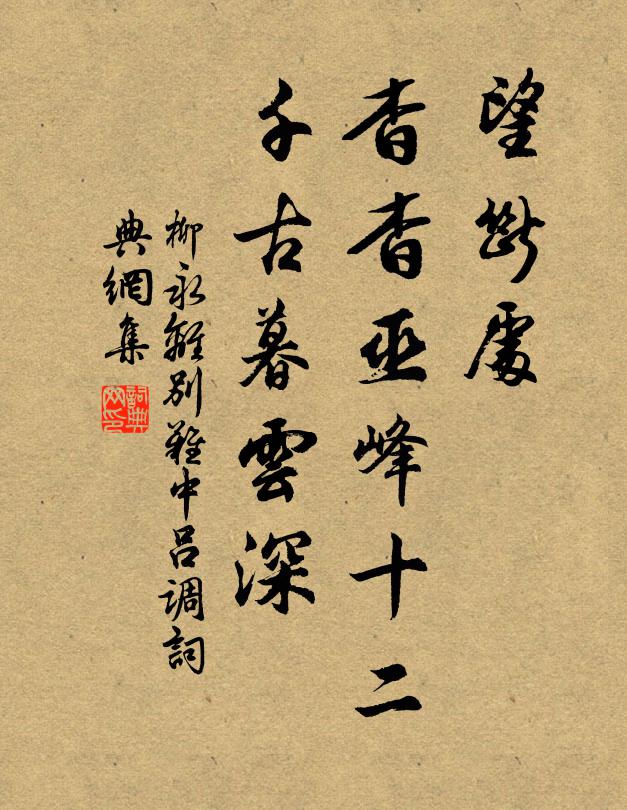 望斷處
杳杳巫峰十二
千古暮雲深
柳永離別難中呂調詞
典網集
詞典
网印